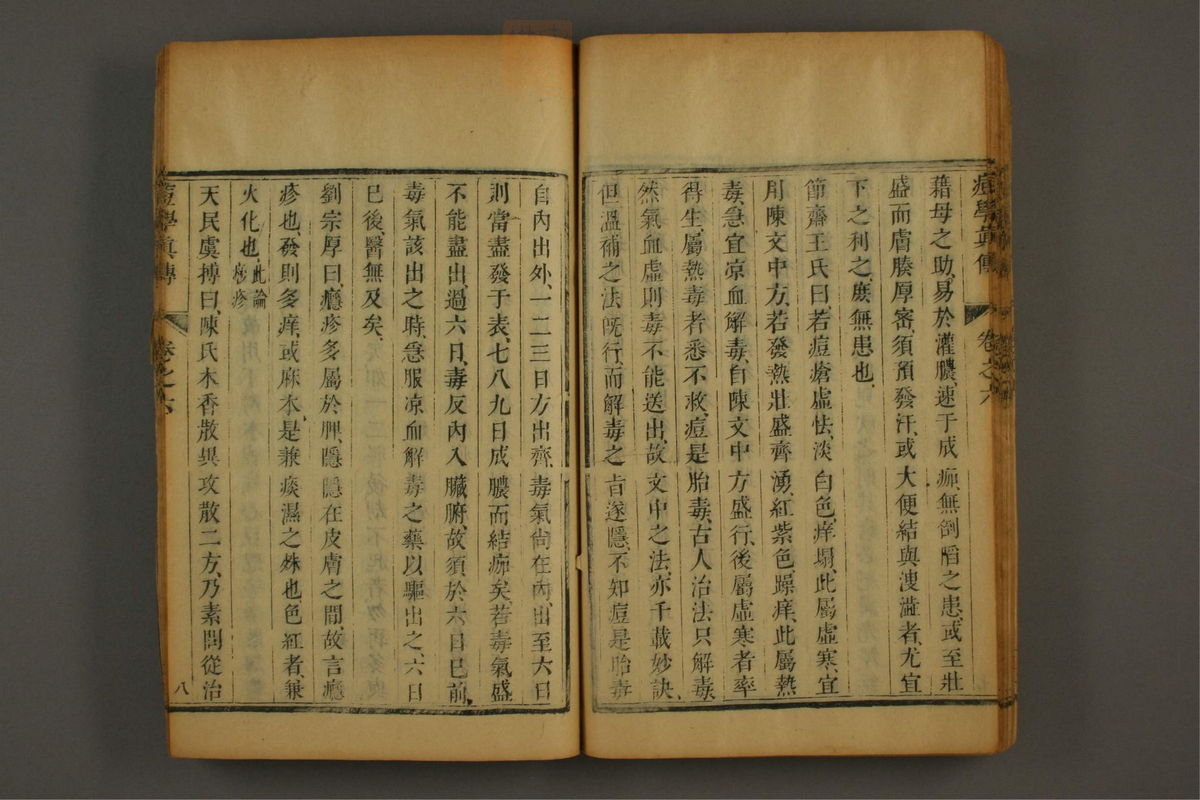 痘學眞傳 卷之六
藉母之助、易於灌膿、速于成痂、無倒陷之患、或至壯
盛而膚腠厚密、須預發汗、或大便結與溲澁者、尤宜
下之利之、庶無患也、
節齋王氏曰、若痘瘡虛怯、淡白色、痒塌、此屬虛寒、宜
用陳文中方、若發熱壯盛、齊湧、紅紫色、躁痒、此屬熱
毒、急宜凉血解毒、自陳文中方盛行、後屬虛寒者率
得生、屬熱毒者悉不救、痘是胎毒、古人治法只解毒、
然氣血虛則毒不能送出、故文中之法、亦千載妙訣、
但溫補之法旣行、而解毒之旨遂隱、不知痘是胎毒
自內出外、一二三日方出齊、毒氣尙在內、出至六日
則當盡發于表、七八九日成膿而結痂矣、若毒氣盛
不能盡出、過六日、毒反內入臟腑、故須於六日已前、
毒氣該出之時、急服凉血解毒之藥以驅出之、六日
已後、醫無及矣、
劉宗厚曰、癮疹多屬於脾、隱隱在皮膚之間、故言癮
疹也、發則多痒或麻木、是兼痰濕之殊也、色紅者、兼
火化也、此論𤺋疹
天民虞摶曰、陳氏木香散異攻散二方、乃素問從治
痘學眞傳 卷之六
八